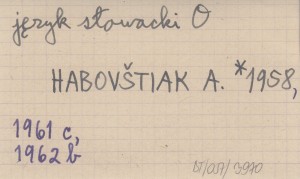 język słowacki O
HABOVŠTIAK A. *1958,
1961 c,
1962 b